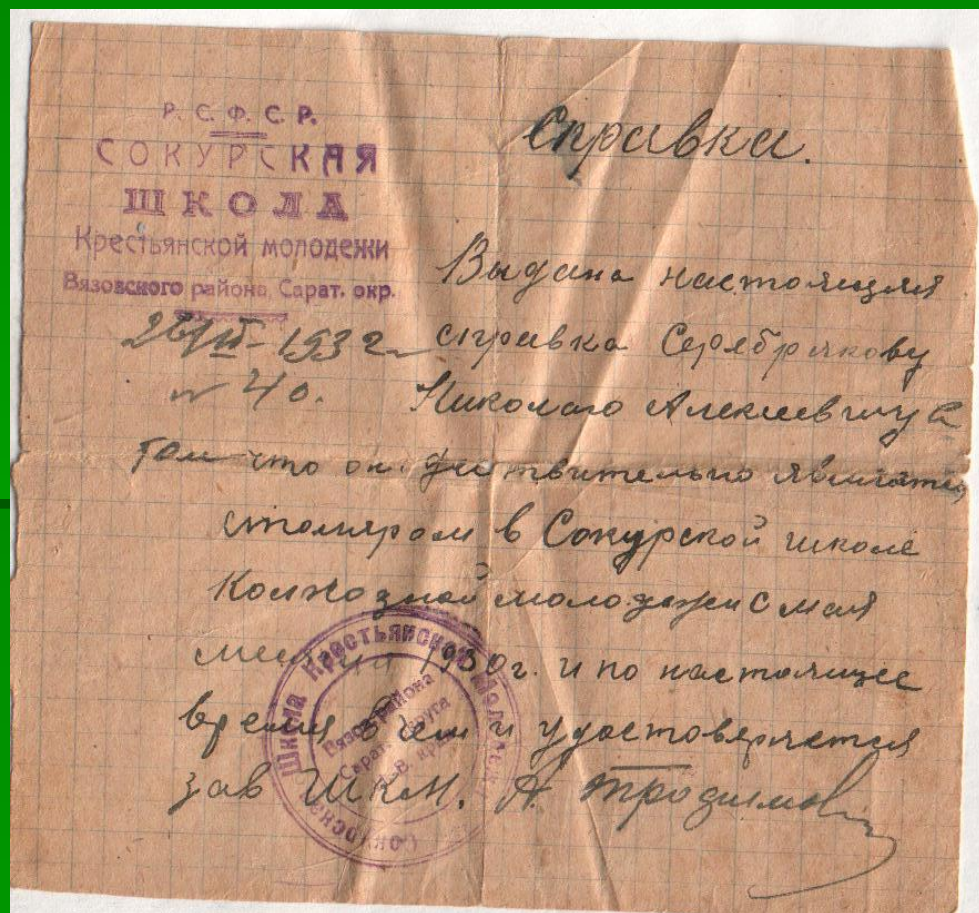 Р. С. Ф. С. Р.
СОКУРСКАЯ
ШКОЛА
Крестьянской молодежи
Вязовского района, Сарат. окр.
193 г.
№ 40.
Справка.
Выдана настоящая
справка Серебрякову
Николаю Алексеевичу в
том что он действительно является
столяром в Сокурской школе
Колхозной молодежи с мая
месяца 1930г. и по настоящее
время в чем и удостоверяется
зав ШКМ. А.
Школа Крестьянской Молодежи
Сокурская
Вязов. района
Сарат. округа
Н.-В. края